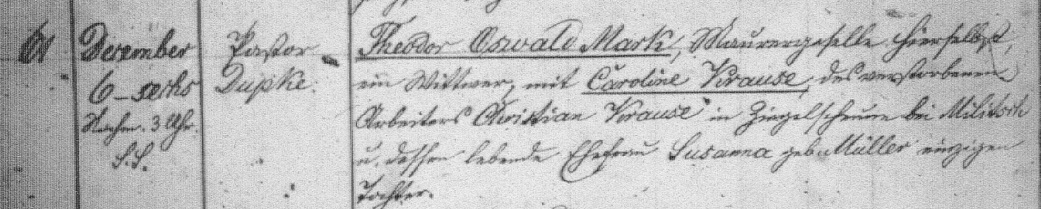 61
December
6 - sechs
Nachm. 3 Uhr.
S. S.
Pastor
Dupke.
Theodor Oswald Mark, Maurergeselle hierselbst,
ein Wittwer, mit Caroline Krause, des verstorbenen
Arbeiters Christian Krause in Ziegelscheune bei Militsch
u. dessen lebende Ehefrau Susanna geb. Müller einzigen
Tochter.